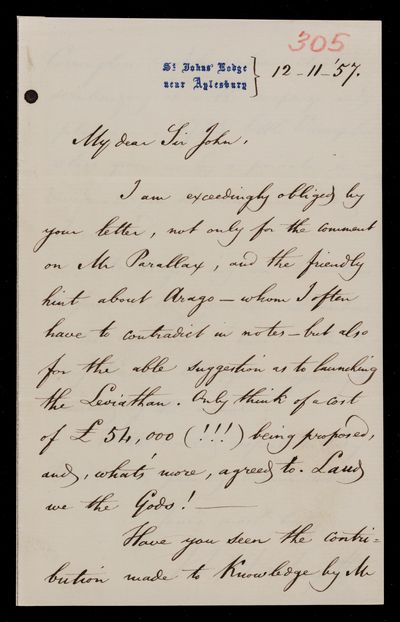 305
St Johns' Lodge
near Aylesbury } 12-11-'57.
My dear Sir John,
I am exceedingly obliged by
your letter, not only for the comment
on Mr Parallax, and the friendly
hint about Arago — whom I often
have to contradict in notes — but also
for the able suggestion as to launching
the Leviathan. Only think of a cost
of £54,000 (!!!) being proposed,
and, what's more, agreed to. Laud
we the Gods! —
Have you seen the contri=
bution made to Knowledge by Mr